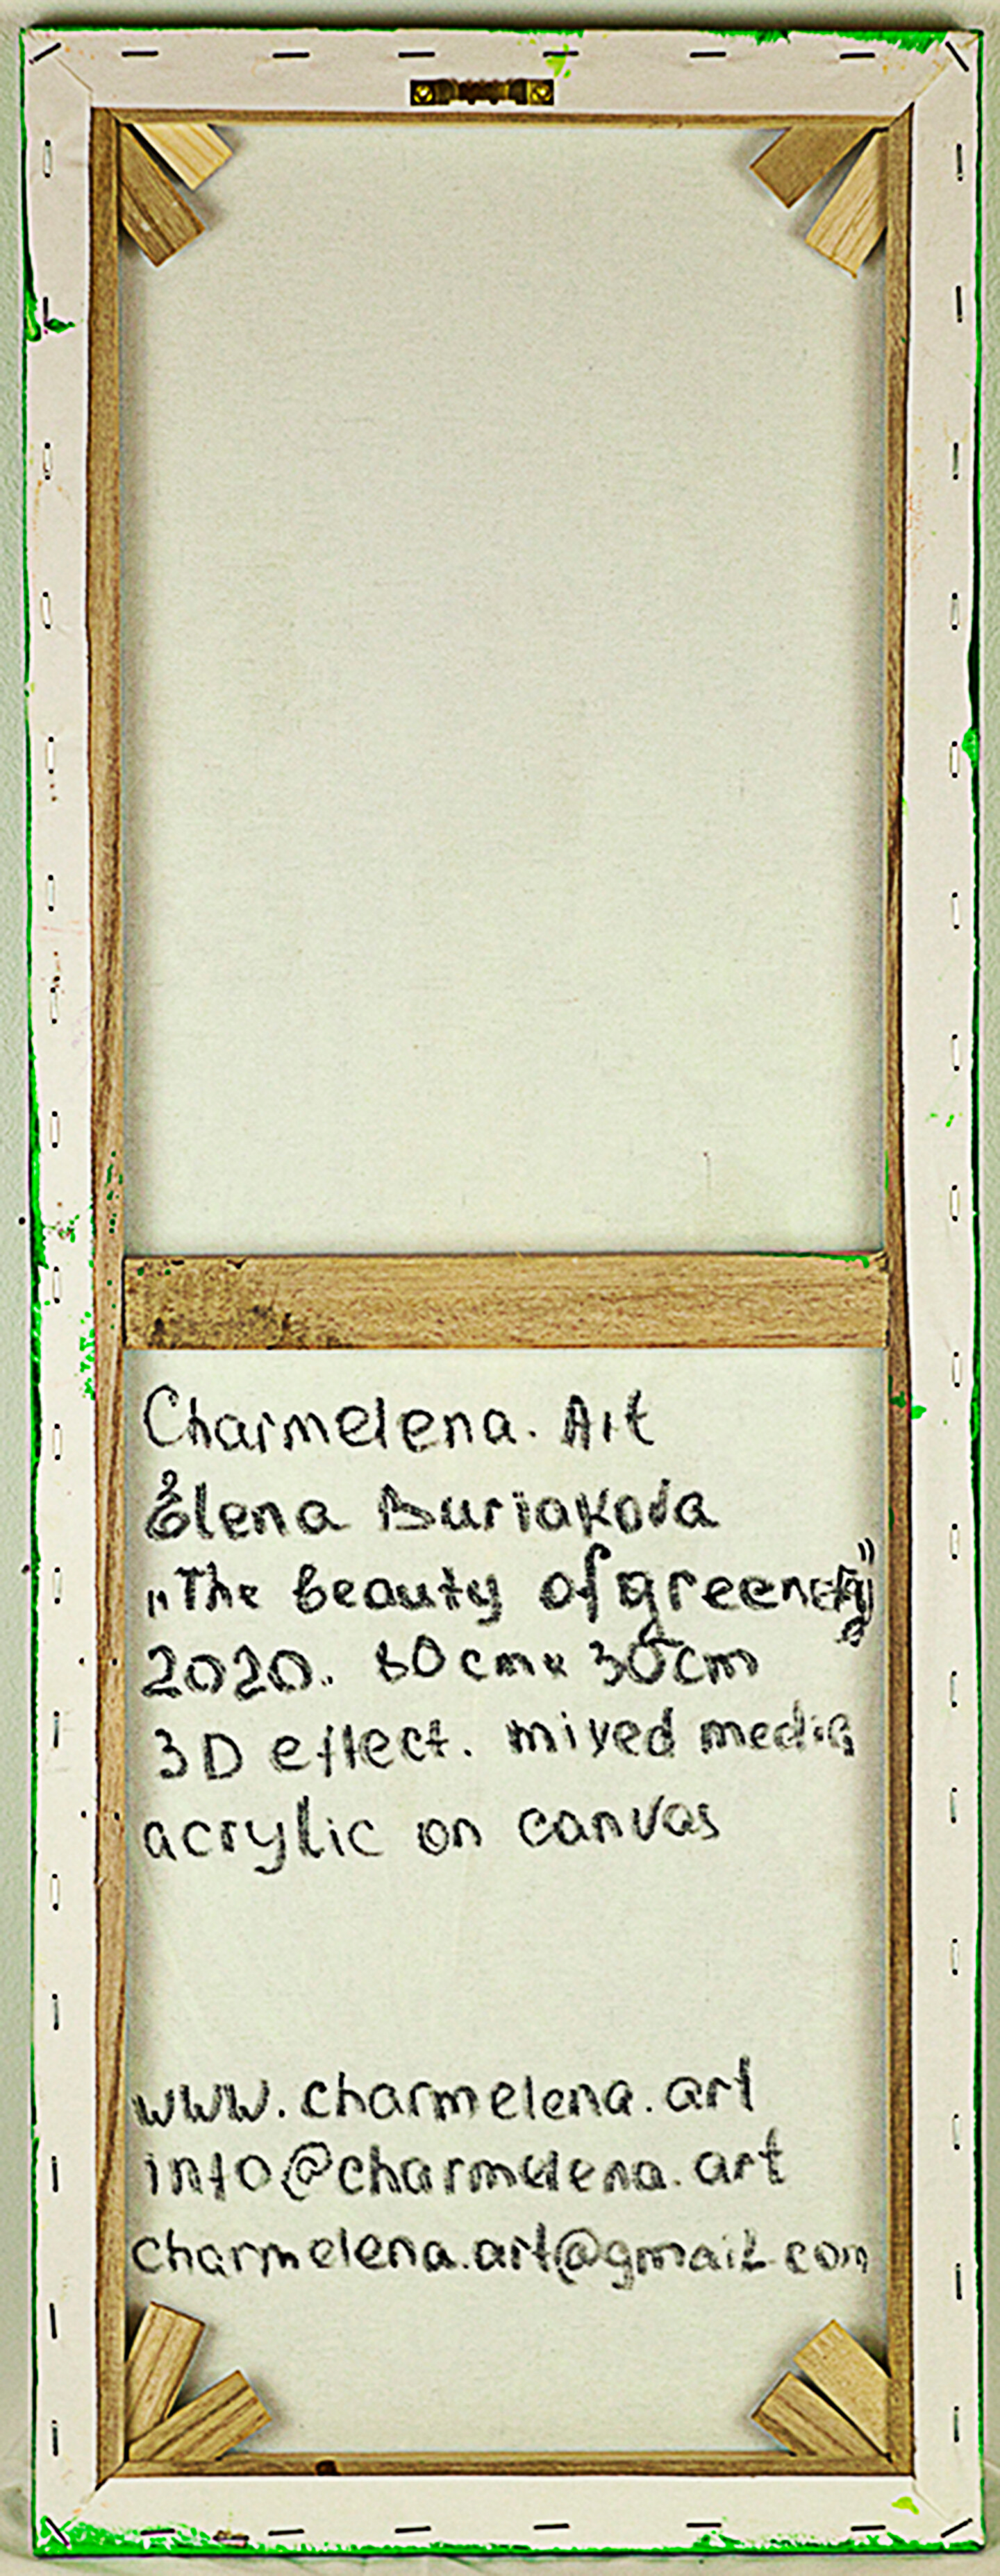 Charmelena. Art
Elena Buriakova
„The beauty of
2020. 80cm x 30cm
3D effect. mixed media
acrylic on canvas
www.charmelena.art
info@charmelena.art
charmelena.art@gmail.com